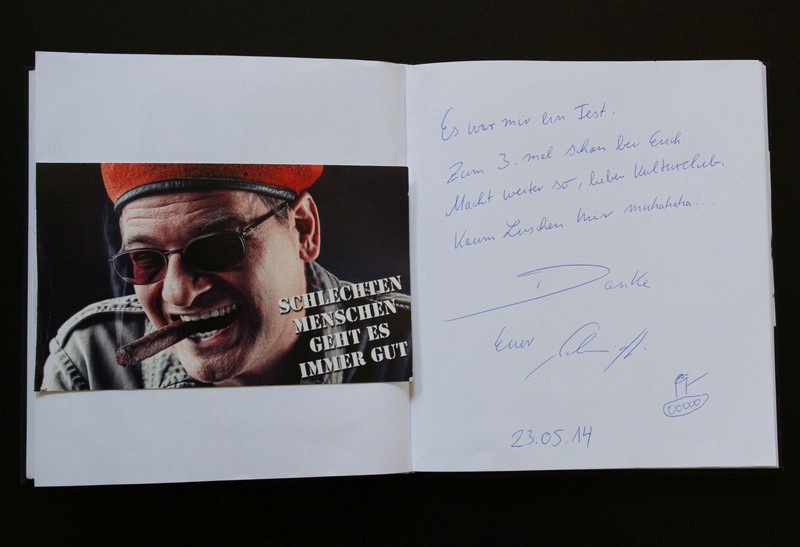 SCHLECHTEN
MENSCHEN
GEHT ES
IMMER GUT
Es war mir ein Fest.
Zum 3. mal schon bei Euch
Macht weiter so, lieber Kulturclub.
Kaum Luschen hier muhahaha....
Danke
Euer
23.05.14